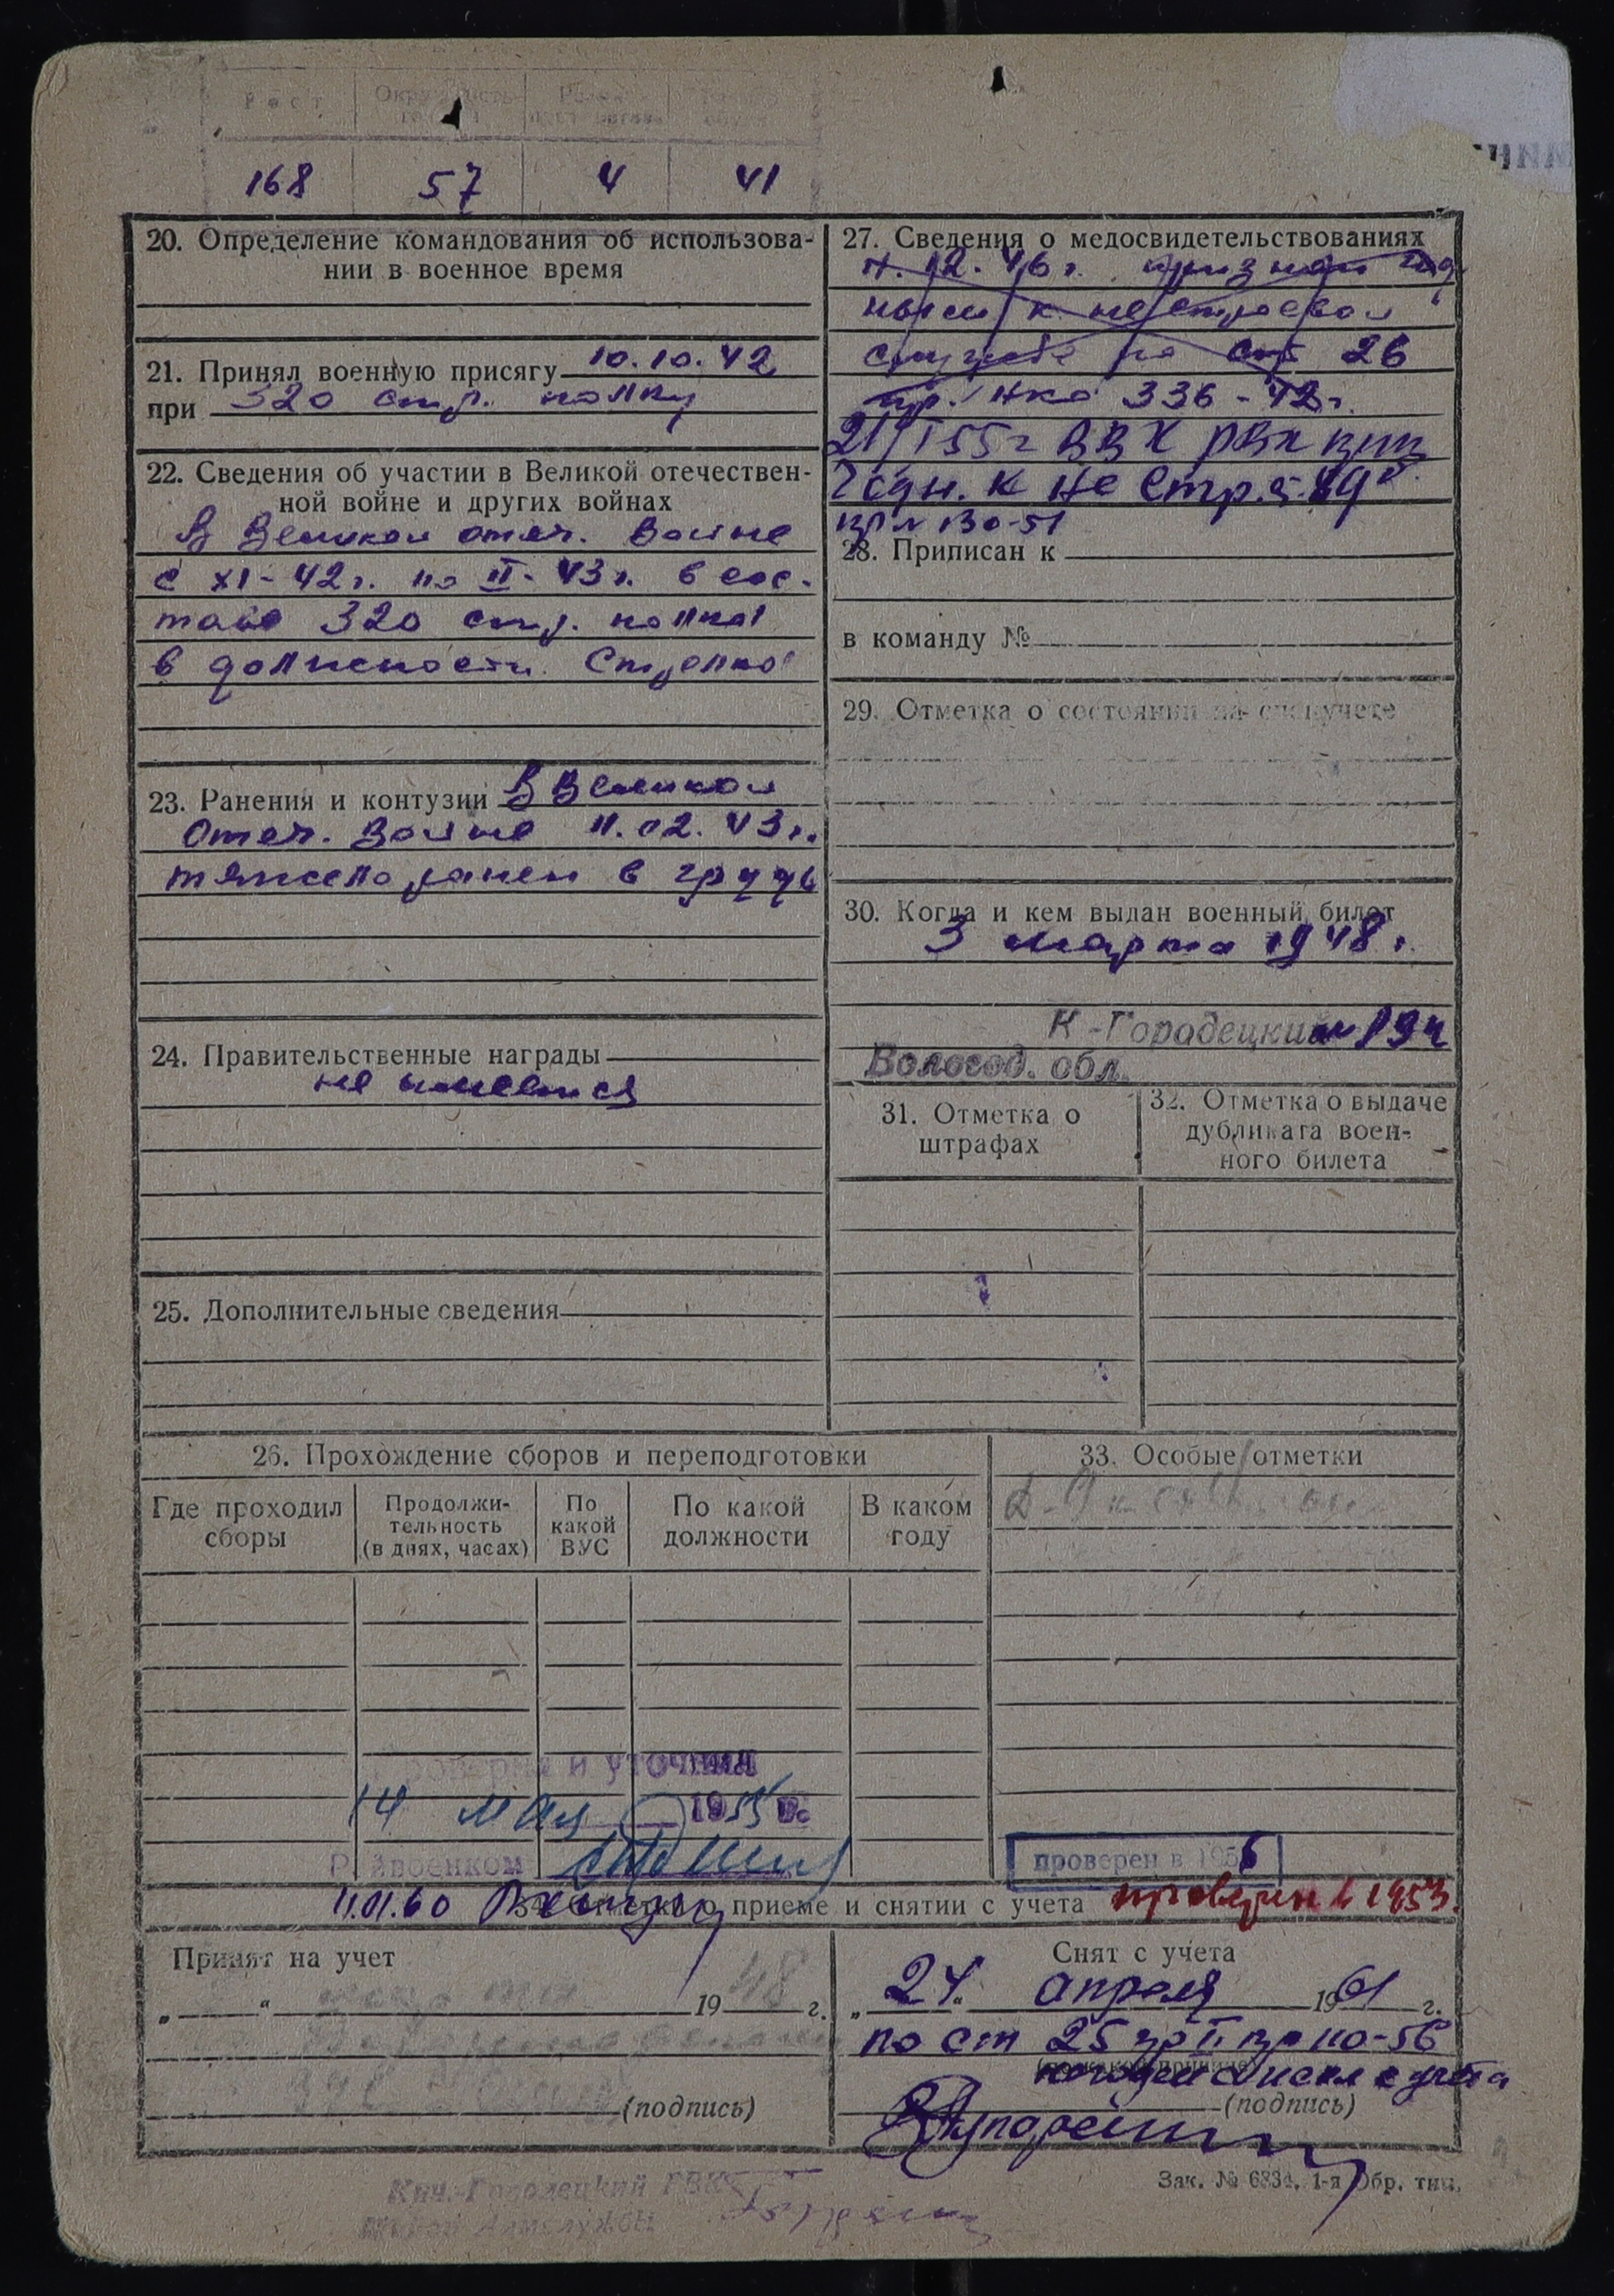 Рост Окружность головы Разм. Размер
168 57 4 41
20. Определение командования об использова-
нии в военное время
21. Принял военную присягу 10.10.42
при 320 стр. полку
22. Сведения об участии в Великой отечествен-
ной войне и других войнах
В Великой отеч. войне
с XI-42г. по II-43г. в сос-
таве 320 стр. полка
в должности стрелка
23. Ранения и контузии В Великой
Отеч. войне 11.02.43г.
тяжело ранен в грудь
24. Правительственные награды
не имеется
25. Дополнительные сведения
27. Сведения о медосвидетельствованиях
12.46г. признан год
ным к нестроевой
службе по ст 26
пр. НКО 336-42г.
21/I 55г ВВК РВК
годн. к не стр. 49
пр № 130-51
28. Приписан к
в команду №
29. Отметка о состоянии на спецучете
30. Когда и кем выдан военный билет
3 марта 1948г.
К-Городецкий
Вологод. обл.
31. Отметка о
штрафах
32. Отметка о выдаче
дубликата воен-
ного билета
26. Прохождение сборов и переподготовки
Где проходил
сборы
Продолжи-
тельность
(в днях, часах)
По
какой
ВУС
По какой
должности
В каком
году
33. Особые отметки
Проверил и уточнил
14 мая 1955 г.
Райвоенком
проверен в 1956
11.01.60
34. Отметки о приеме и снятии с учета проверен в 1953.
Принят на учет
„ “ марта 1948 г.
(подпись)
Снят с учета
„24“ апреля 1961 г.
по ст 25 гр II пр 110-56
(по какой причине)
с учета
(подпись)
Зак. № 6834. 1-я Обр. тип.
Кич.-Городецкий РВК